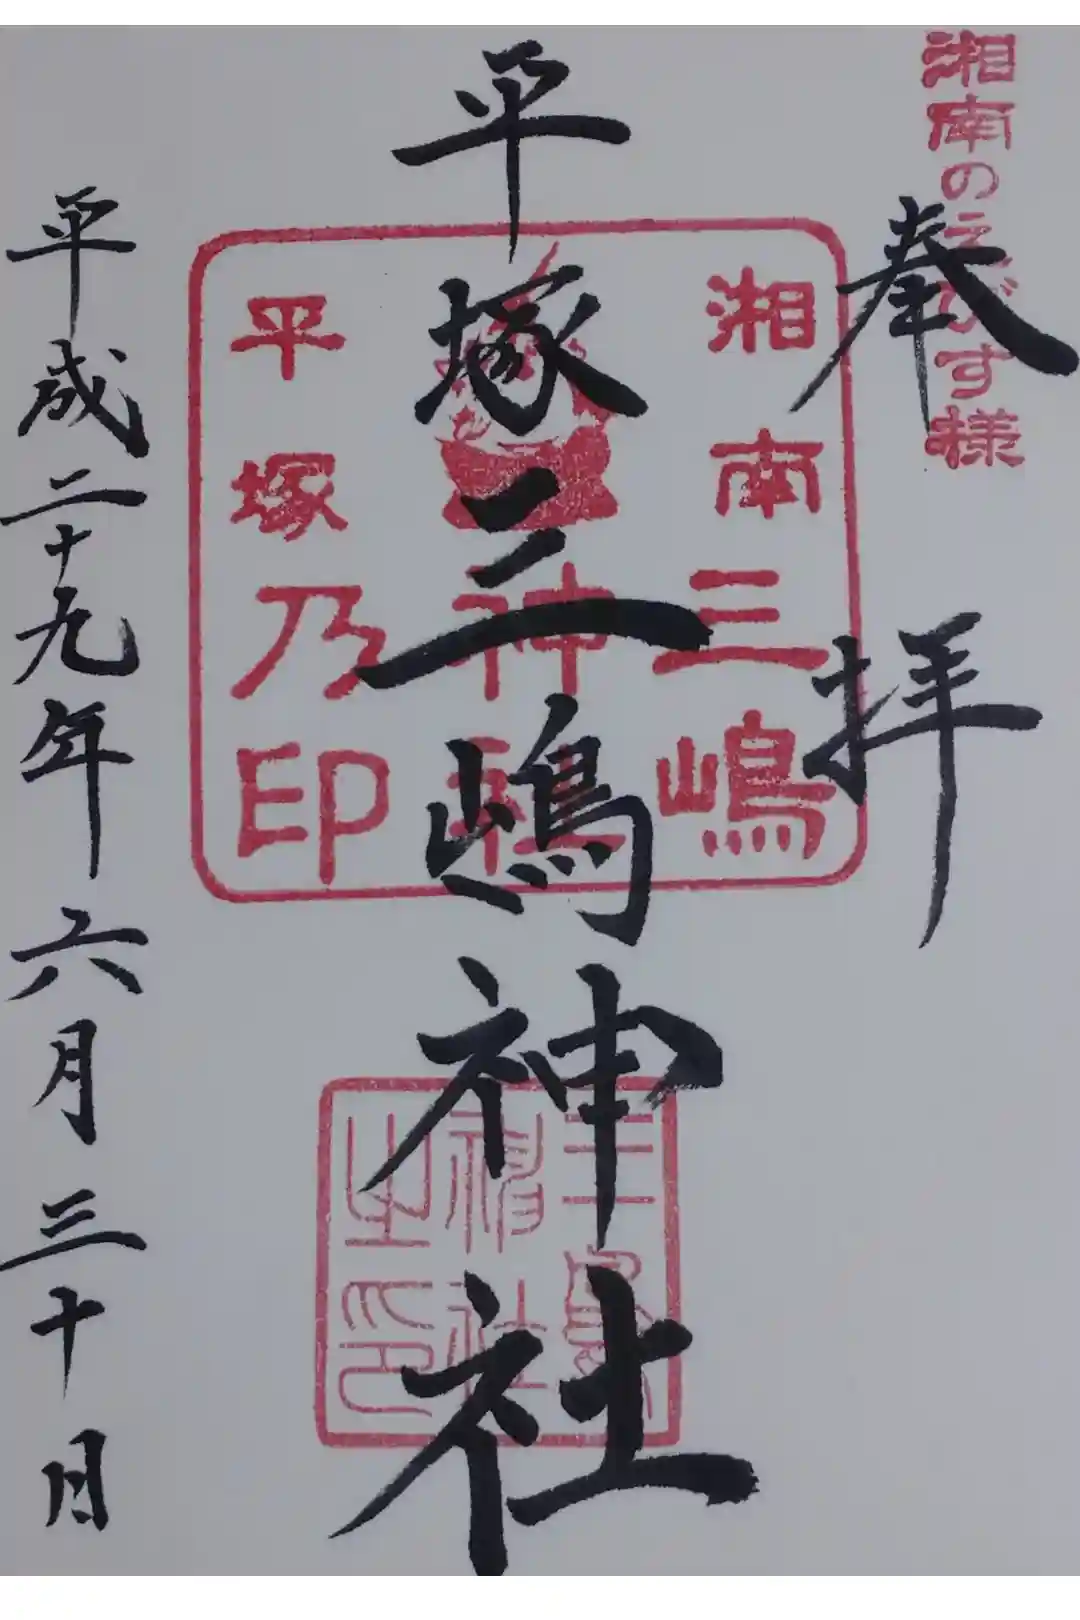 湘南のえびす様
奉拝
湘南三嶋
神社
平塚乃印
平塚三嶋神社
三島
神社
之印
平成二十九年六月三十日